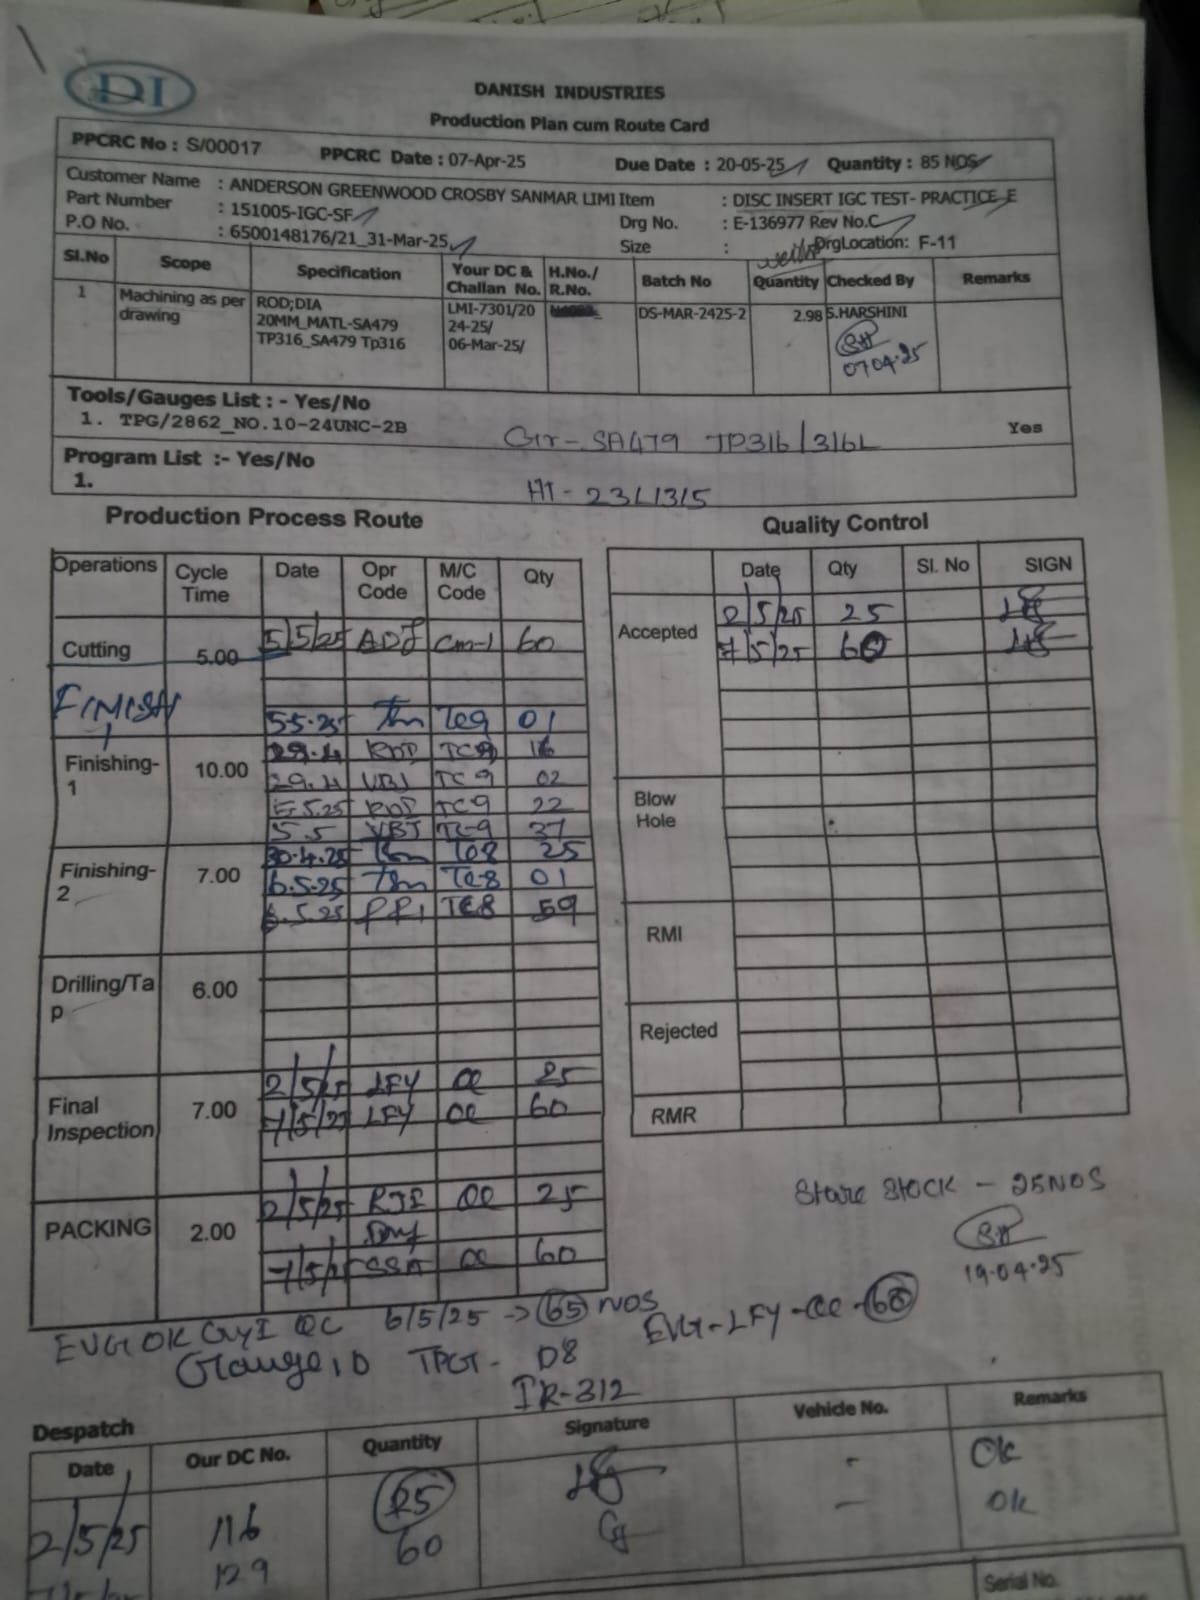 DI
DANISH INDUSTRIES
Production Plan cum Route Card
PPCRC No : S/00017 PPCRC Date : 07-Apr-25 Due Date : 20-05-25 Quantity : 85 NOS
Customer Name : ANDERSON GREENWOOD CROSBY SANMAR LIMI Item : DISC INSERT IGC TEST- PRACTICE E
Part Number : 151005-IGC-SF Drg No. : E-136977 Rev No.C
P.O No. : 6500148176/21_31-Mar-25 Size : DrgLocation: F-11
Sl.No Scope Specification Your DC & Challan No. H.No./ R.No. Batch No Quantity Checked By Remarks
1 Machining as per drawing ROD;DIA 20MM_MATL-SA479 TP316_SA479 Tp316 LMI-7301/20 24-25/ 06-Mar-25/ DS-MAR-2425-2 2.98 S.HARSHINI
07.04.25
Tools/Gauges List : - Yes/No
1. TPG/2862_NO.10-24UNC-2B Yes
Gr - SA479 TP316/316L
Program List :- Yes/No
1.
HT - 23L1315
Production Process Route
Operations Cycle Time Date Opr Code M/C Code Qty
Cutting 5.00 5/5/25 ADJ Cm-1 60
FINISH 1
5.5.25 TC9 01
Finishing-1 10.00 29.4 TC9 16
29.4 VBJ TC9 02
5.5.25 TC9 22
5.5 VBJ TC-9 37
Finishing-2 7.00 30.4.25 TC8 25
6.5.25 TC-8 01
6.5.25 PP1 TC8 59
Drilling/Tap 6.00
Final Inspection 7.00 2/5/25 LFY 25
7/5/25 LFY 60
PACKING 2.00 2/5/25 25
7/5/25 SSA 60
Quality Control
Date Qty Sl. No SIGN
Accepted 2/5/25 25
7/5/25 60
Blow Hole
RMI
Rejected
RMR
Store Stock - 25NOS
19.04.25
EVG OK QC 6/5/25 -> 65 NOS
EVG-LFY-
Gauge ID TPG - D8
IR-312
Despatch
Date Our DC No. Quantity Signature Vehicle No. Remarks
2/5/25 116 25 - Ok
129 60 - Ok
Serial No.